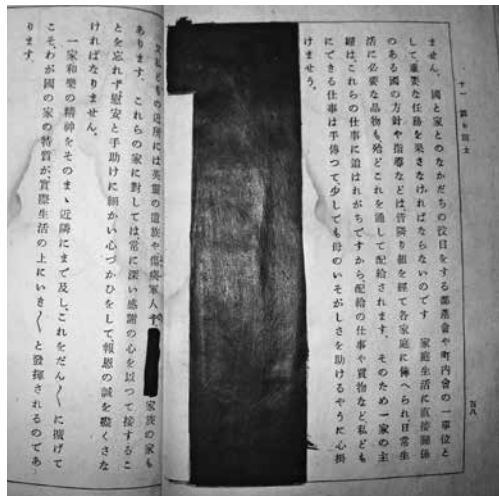 十一
五八
ません。國と家とのなかだちの役目をする部落會や町内會の一單位と
して、重要な任務を果さなければならないのです 家庭生活に直接關係
のある國の方針や指導などは皆隣り組を經て各家庭に傳へられ日常生
活に必要な品物も、殆どこれを通して配給されます。そのため一家の主
婦は、これらの仕事に追はれがちですから、配給の仕事や買物など私ども
にできる仕事は手傳つて、少しでも母のいそがしさを助けるやうに心掛
けませう。
又私どもの近所には英靈の遺族や傷痍軍人や 家族の家も
あります。これらの家に對しては常に深い感謝の心を以つて接するこ
とを忘れず、慰安と手助けに細かい心づかひをして報恩の誠を盡くさな
ければなりません。
一家和樂の精神をそのまゝ近隣にまで及し、これをだん〳〵に擴げて
こそ、わが國の家の特質が、實際生活の上にいき〳〵と發揮されるのであ
ります。